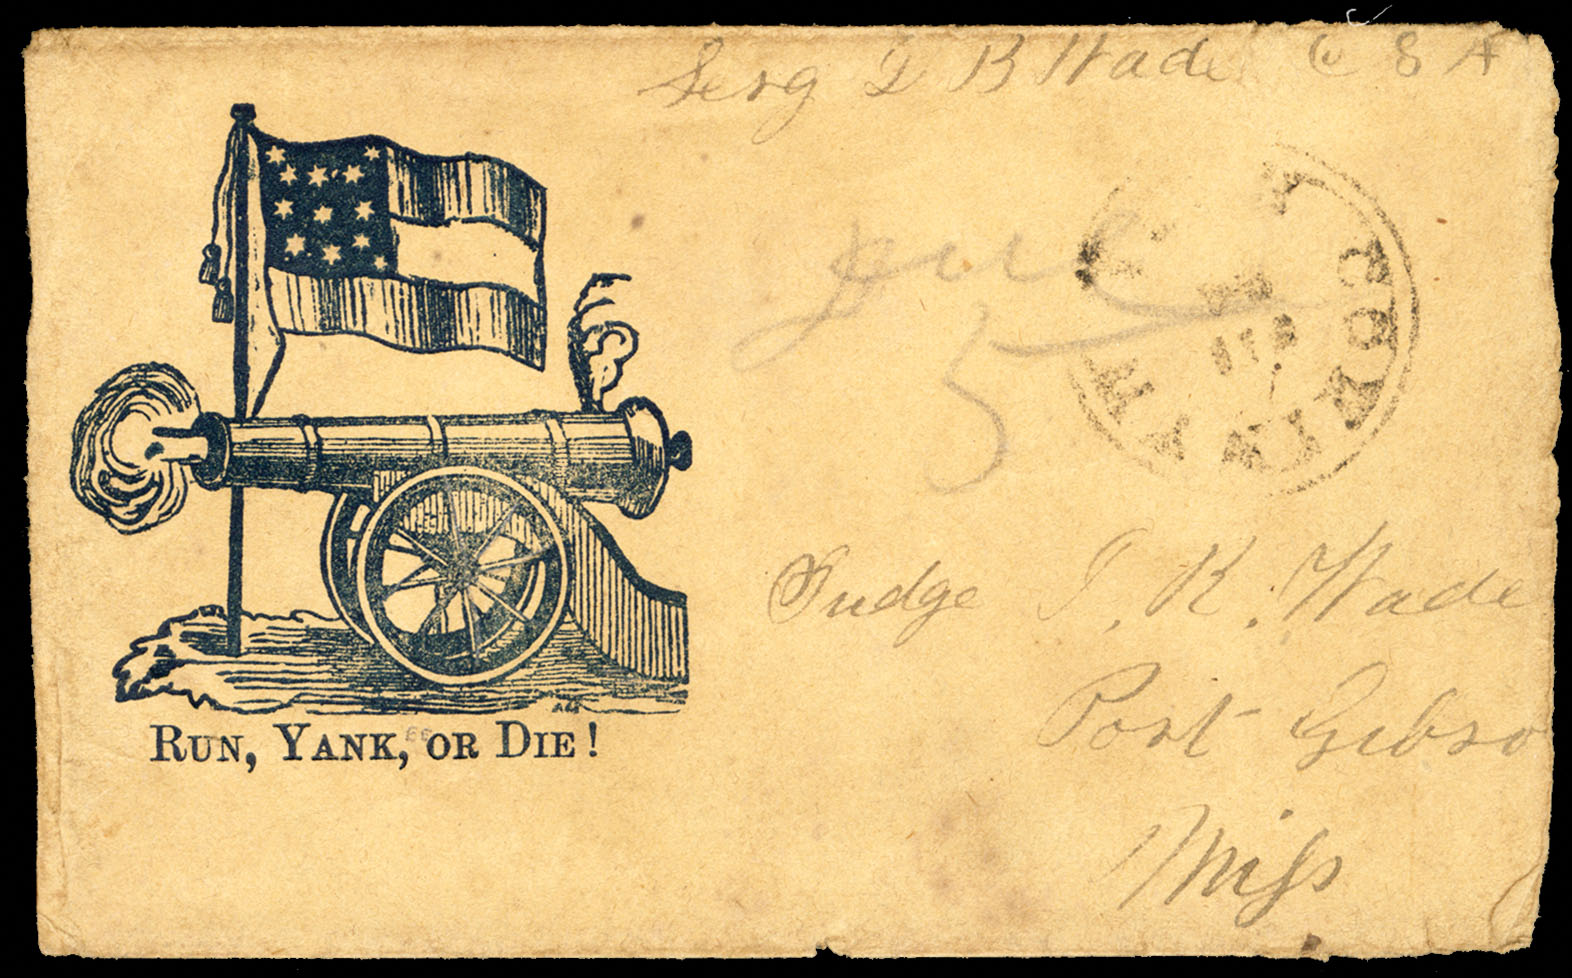 Serg I B Wade C S A
Due
5
CORINTH
Judge T. R. Wade
Port Gibso
Miss
RUN, YANK, OR DIE!